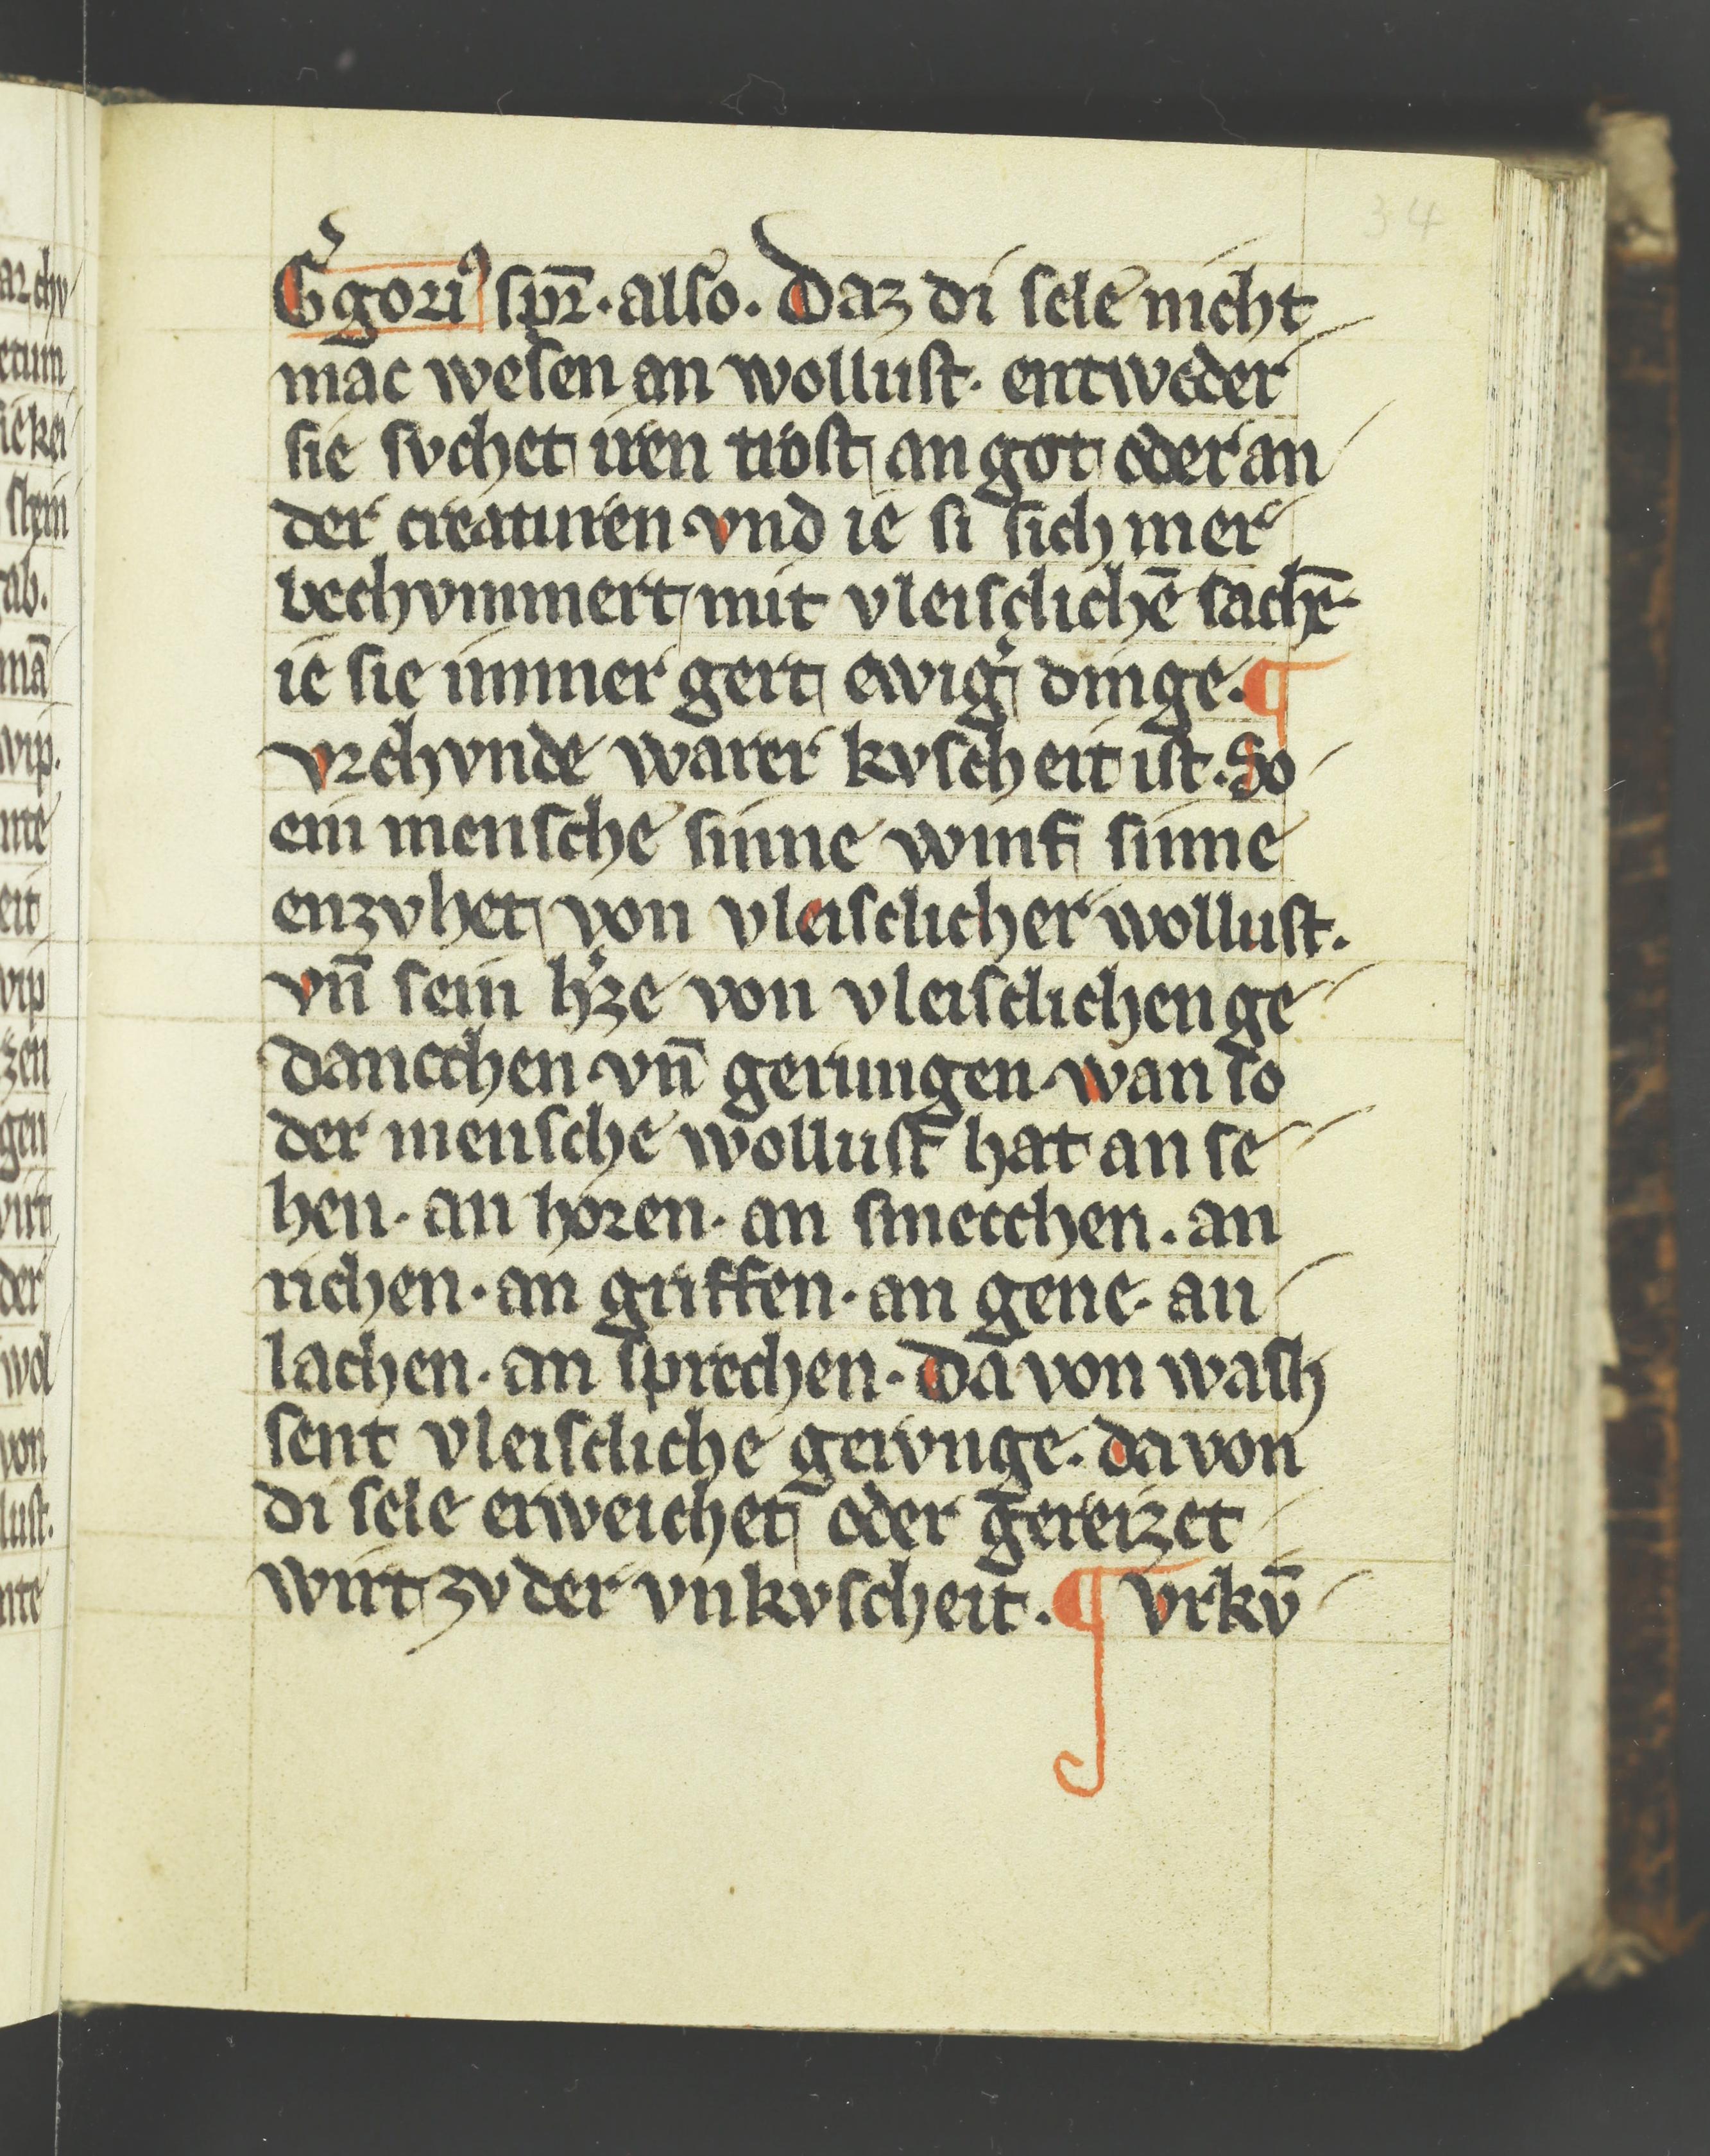 34
G͛gori⁹ sp̄r. also. Daz di sele nicht
mac wesen an wollust. entweder
sie svchet iren trost an got oder an
der creaturen. vnd ie si sich mer
bechvmmert mit vleisclichē sachē.
ie sie immer gert ewig͛ dinge. ¶
vrchvnde warer kvscheit ist. So
ein mensche sinne winf sinne
enzvhet von vleisclicher wollust.
vn̄ sein h͛ze von vleisclichen ge
dancchen. vn̄ gerungen. wan so
der mensche wollust hat an se
hen. an horen. an smecchen. an
richen. an griffen. an gene. an
lachen. an sprechen. Da von wash
sent vleiscliche gervnge. da von
di sele erweichet oder gereizet
wirt zv der vnkvscheit. ¶ vrkv̄